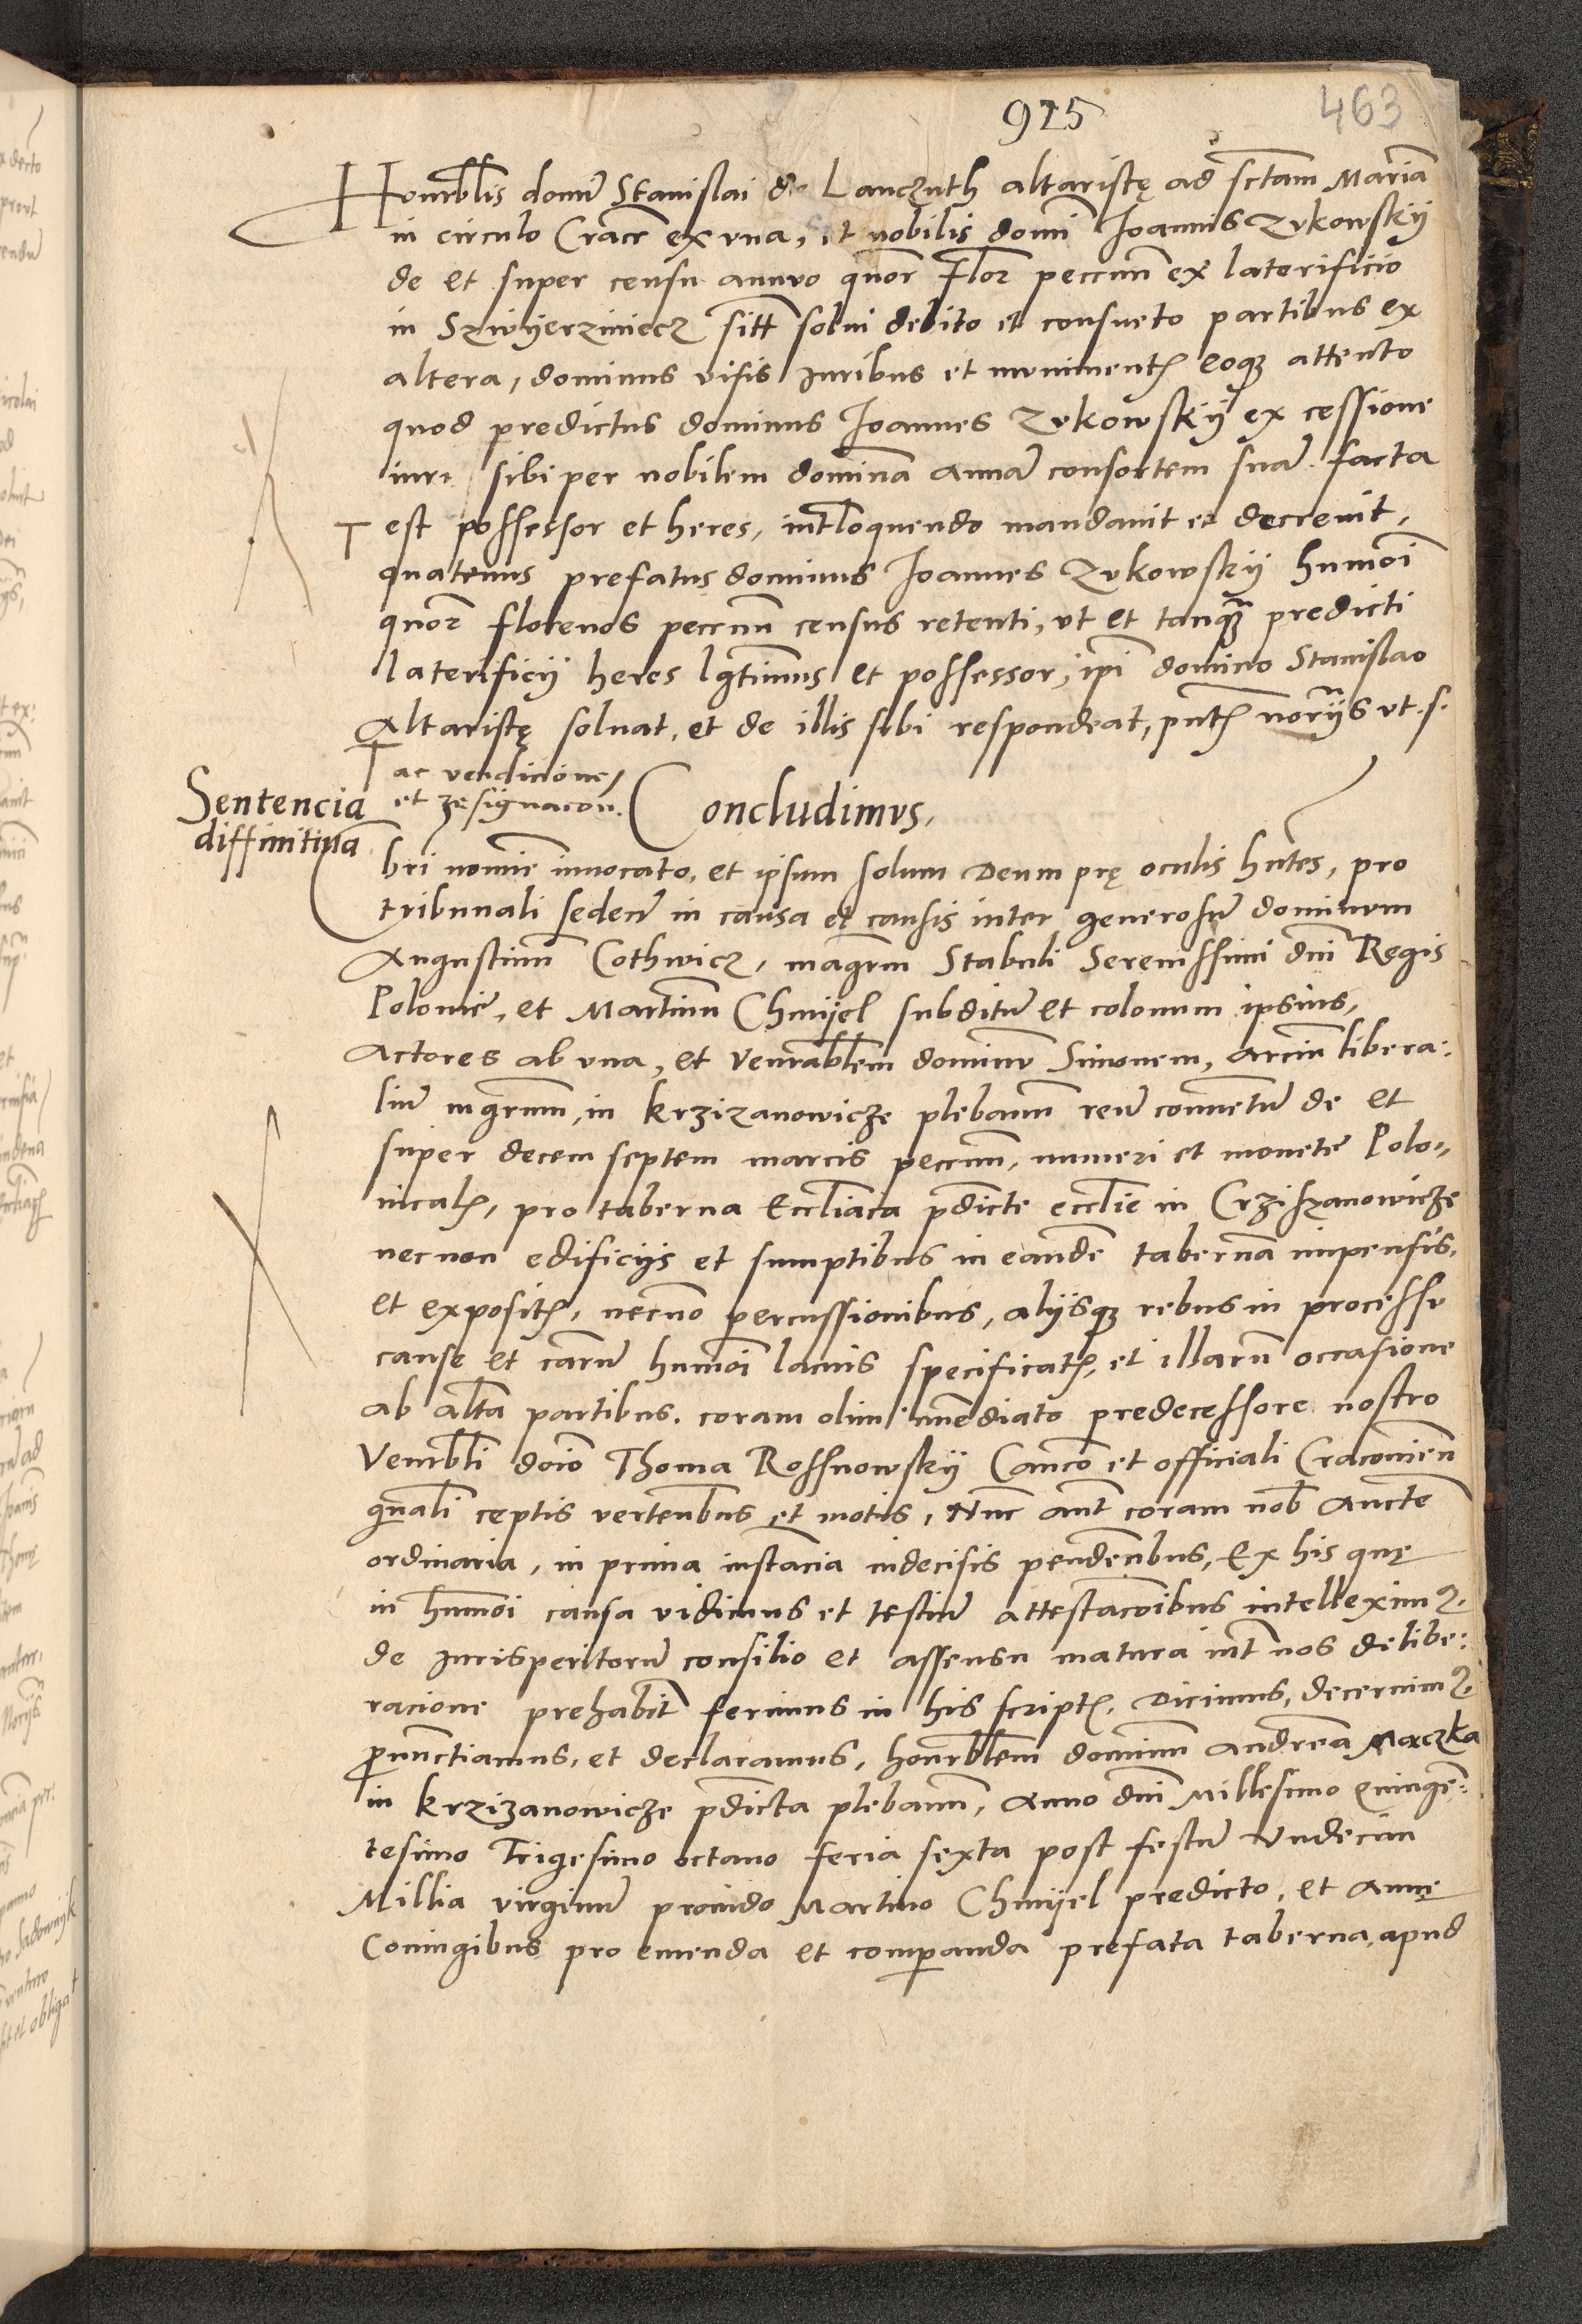 925
463
Honrblis domī Stanislai de Lanczuth altaristę ad sctam Mariā
in circulo Crac̄ ex vna, et nobilis domī Ioannis Zukowskÿ
de et super censu annuo quor̄ Flor̄ peccnn̄ ex laterificio
in Szwÿerziniecz sitt̄ solui debito et consueto partibus ex
altera, dominus visis Iuribus et muniment̄ eoqȝ attento
quod predictus dominus Ioannes Zukowskÿ ex cessione
iur̄ sibi per nobilem dominā annā consortem suā facta
⊤ est possessor et heres, int̄loquendo mandauit et decreuit,
quatenus prefatus dominus Ioannes Zukowskÿ humōi
quor̄ florenos peccnn̄ census retenti, vt et tanqȝ predicti
laterificÿ heres lgtimus et possessor, ipi domino Stanislao
Altaristę soluat, et de illis sibi respondeat, pnt̄ norÿs vt. s.
⊤ ac vendicione,
et resignacōn.
Concludimus,
Sentencia
diffinitiua
Cbri nomīe inuocato, et ipsum solum Deum prę oculis hntes, pro
tribunali seden̄ in causa et causis inter generosū dominum
Augustinū Cothwicz, magrm̄ Stabuli Serenissimi dnī Regis
Poloniē, et Martinū Chmÿel subditū et colonum ipsius,
Actores ab vna, et Venrablem dominū Simonem, arciū libera:
liū mgrum, in krzizanowicze plebanū reū conuentū de et
super decem septem marcis peccnn̄, numeri et monetē Polo,,
nical̄, pro taberna Eccliaca pdicte ecclie in Crzisżanowicze
necnon edificÿs et sumptibus in eandē tabernā impensis,
et exposit̄, necnō percussionibus, alÿsqȝ rebus in processu
cause et carū humōi lacius specificat̄, et illarū occasione
ab alt̄a partibus. coram olim im̄ediato predecessore nostro
Venrbli doīo Thoma Rossnowskÿ Canc̄o et officiali Cracouien̄
gn̄ali ceptis vertenbus et motis, Nūc aūt coram nob̄ Aucte
ordinaria, in prima instancia indecisis pendenbus, Ex his quę
in humōi causa vidimus et testiū attestacōibus intelleximꝰ.
de Iurisperitorū consilio et assensu matura int̄ nos delibe:
racione prehabit̄ ferimus in his script̄, Dicimus, decernimꝰ.
pnunctiamus, et declaramus, honrblem dominū andreā Maczka
in krzizanowicze pdicta plebanū, Anno dnī Millesimo Quingē:
tesimo Trigesimo octauo feria sexta post festū Vndecim
Millia virginū prouido Martino Chmÿel predicto, et Annę
Coniugibus pro emenda et comparanda prefata taberna, apud